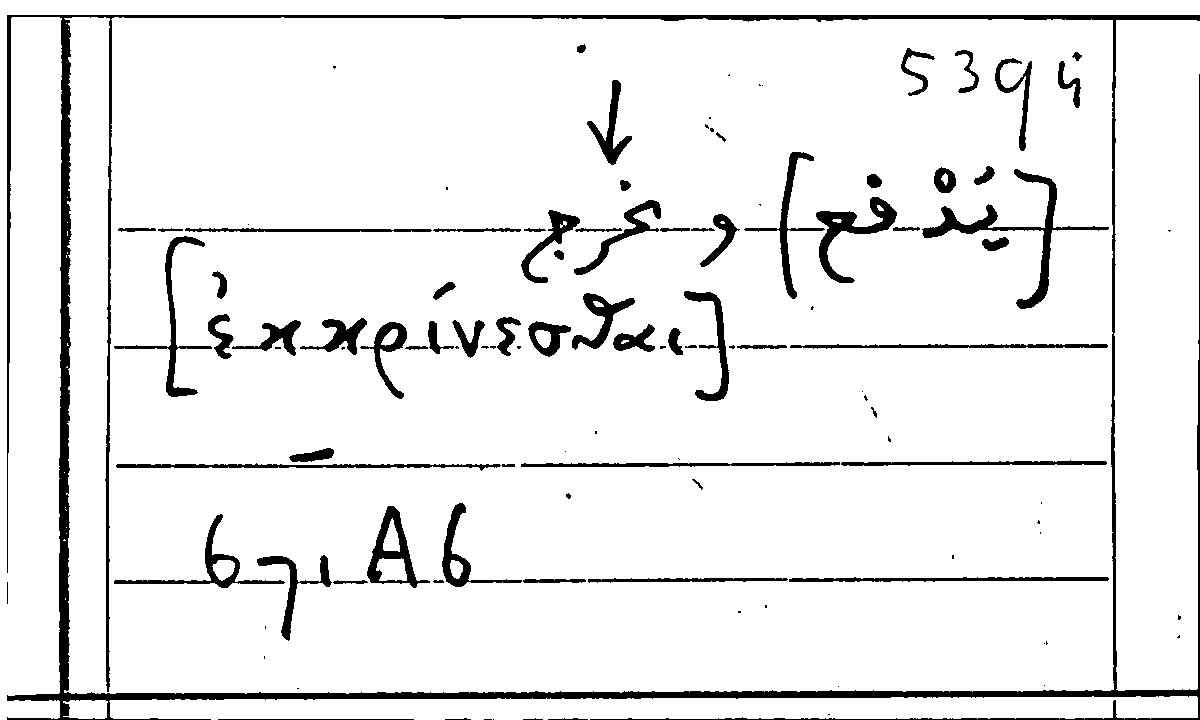 5394
[يَنْدفع] و يخرج
[ἐκκρίνεσθαι]
671 A 6